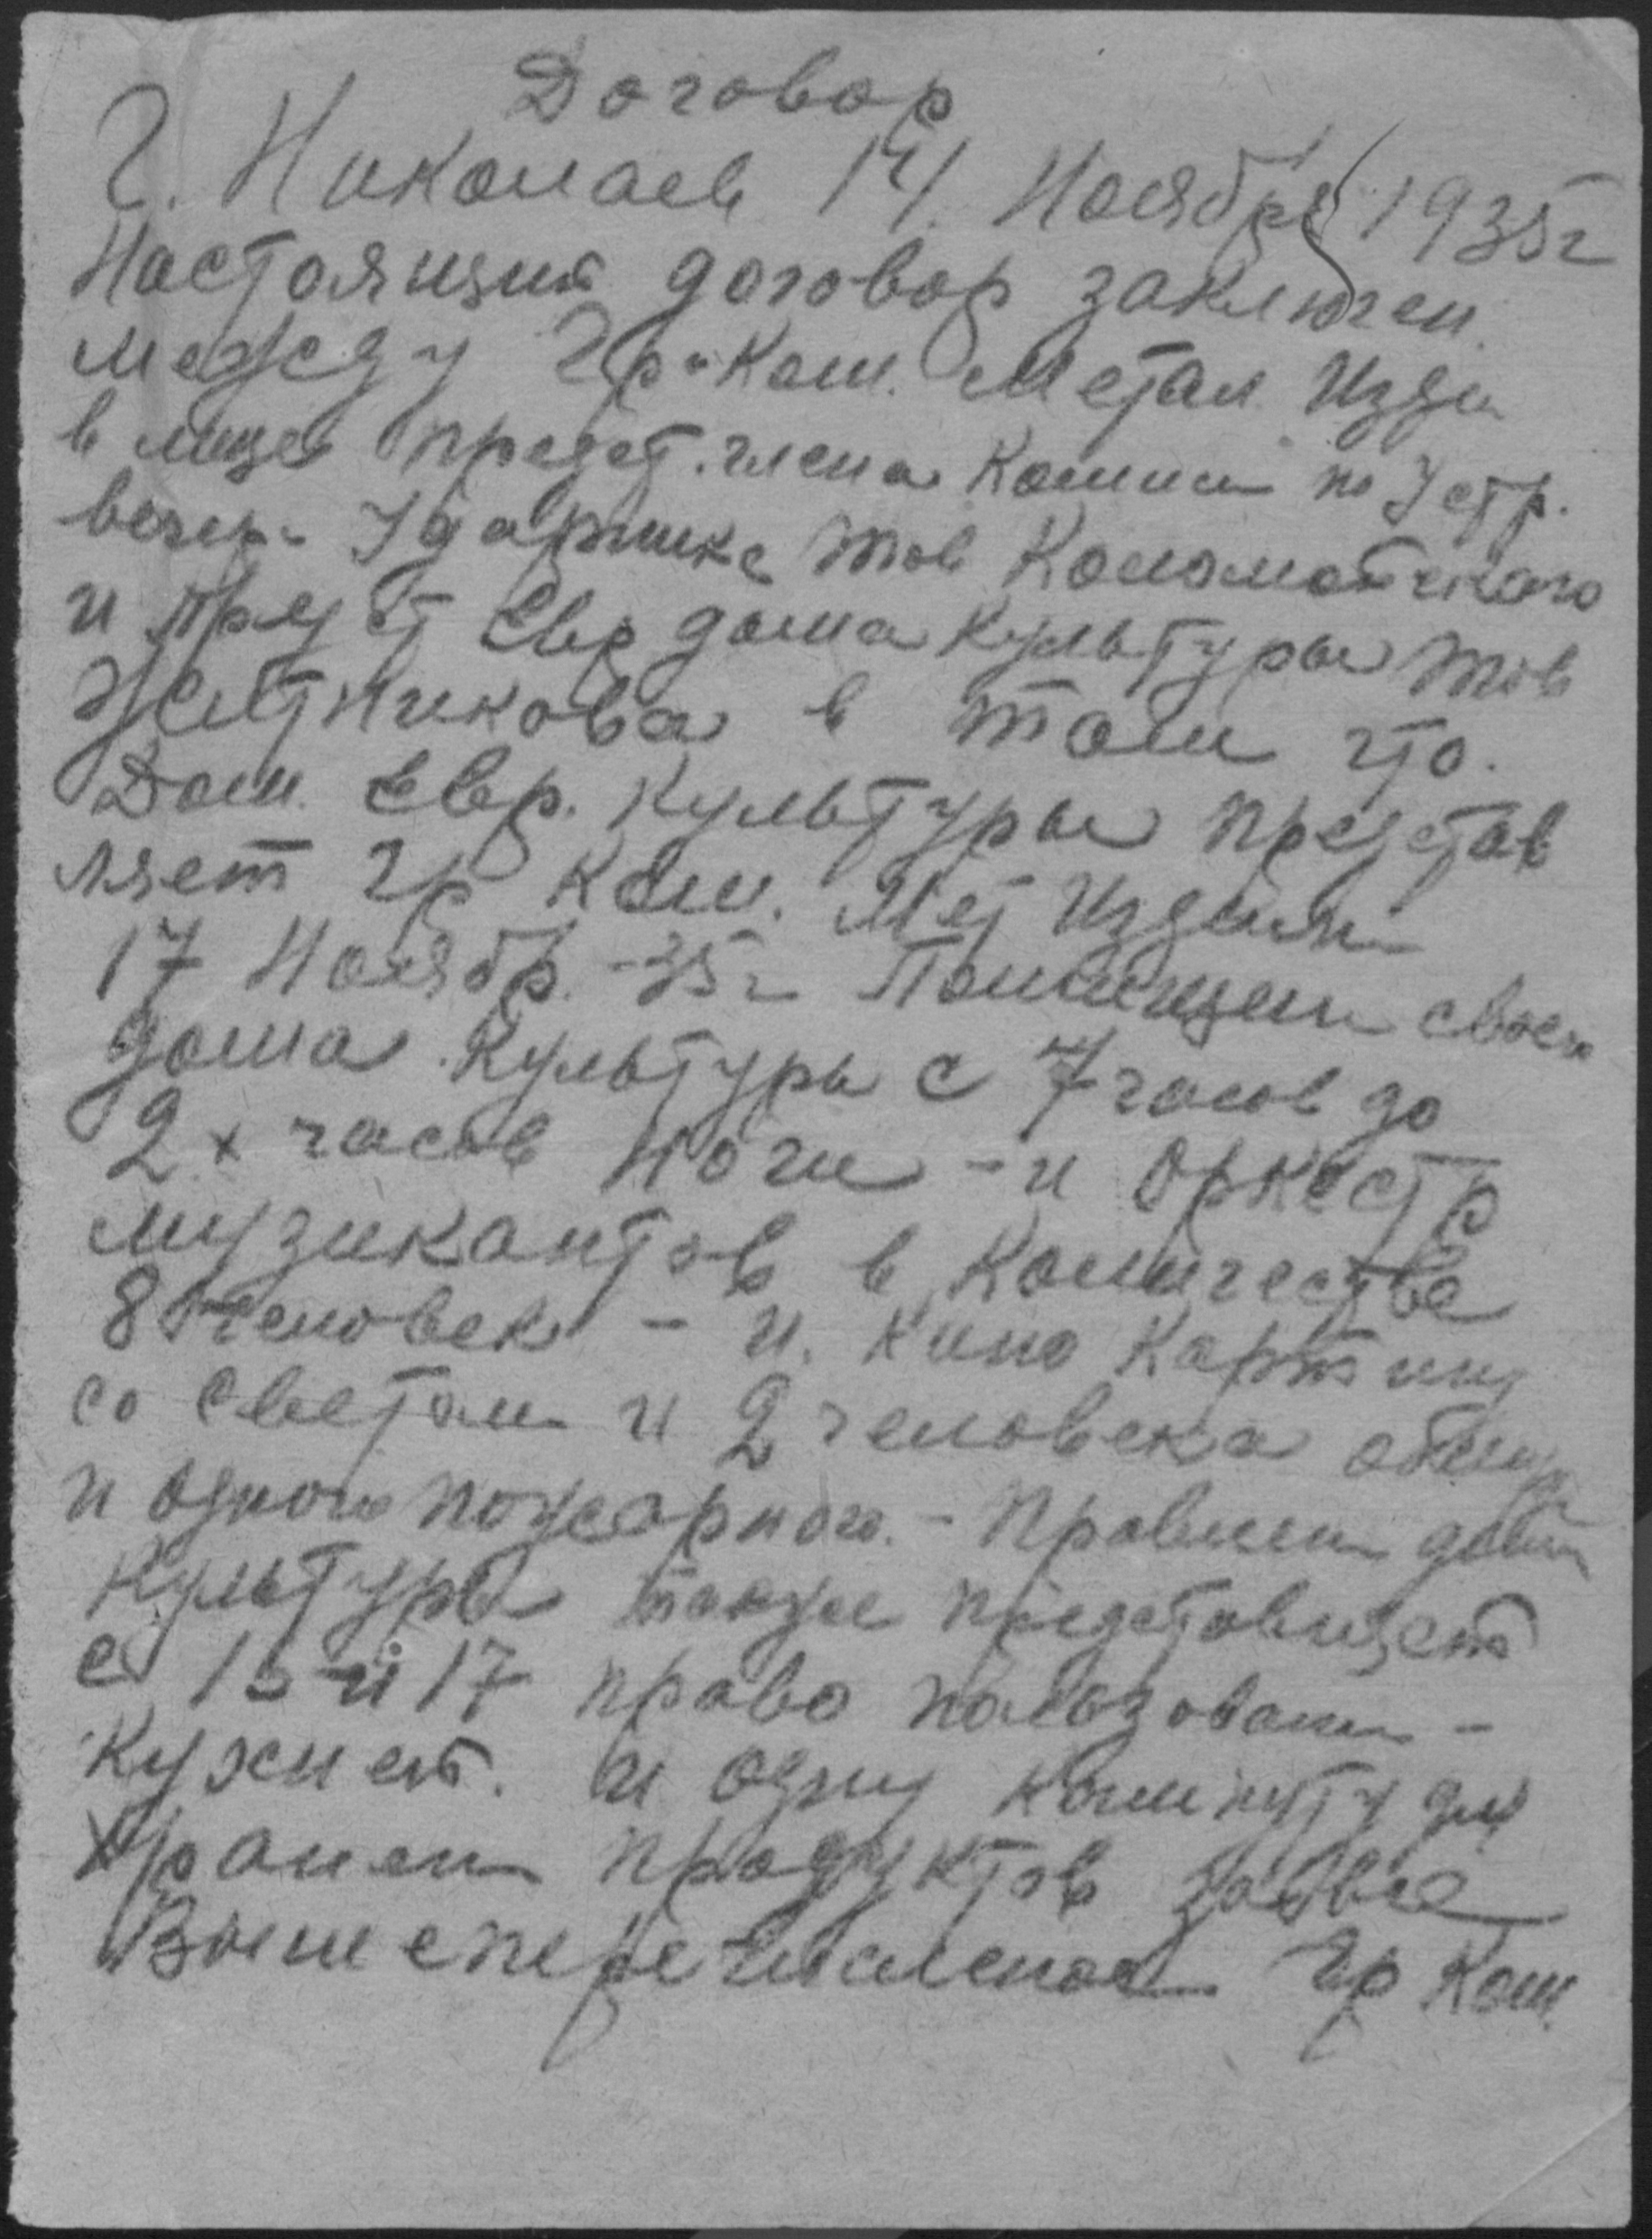 Договор
Г. Николаев 14 Ноября 1935г
Настоящий договор заключен
между Гр. Ком. Метал. Изде
в лице предст. члена комиссии по Устр.
вечера Ударника тов
и предст Евр дома культуры тов
Житникова в том что.
Дом Евр. культуры представ
ляет Гр Ком. Мет Издели
17 Ноябр. -35г Помещен своего
дома культуры с 7 часов до
2х часов ночи - и оркестр
музикантов в количестве
8 человек - и. кино картину
со светом и 2 человека обслуж
и одного пожарного. - Правлен дома
культуры также
с 15 и 17 право ползовани -
кухней. и одну комнату для
Хранен продуктов за все
Вышеперечисленое Гр Ком.